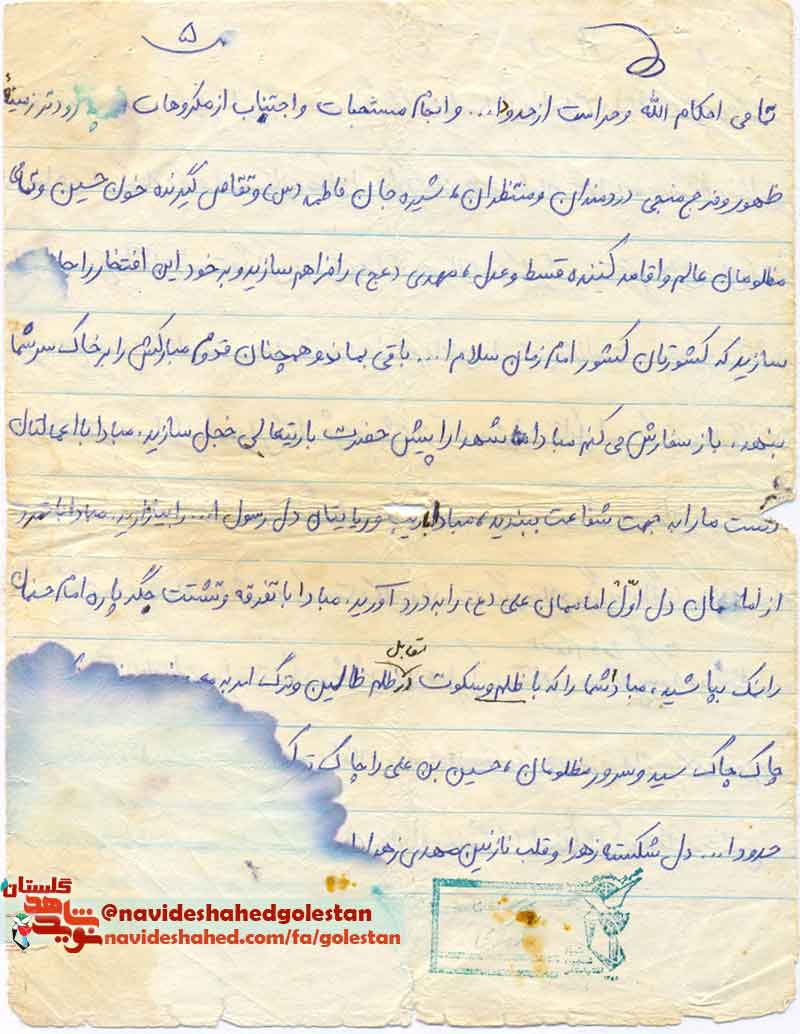 ۵
تمامی احکام الله و حراست از حدود ا... و انجام مستحبات و اجتناب از مکروهات زودتر زمینهٔ
ظهور و فرج منجی دردمندان و منتظران، شیره جان فاطمه (س) و تقاص گیرنده خون حسین و تمامی
مظلومان عالم و اقامه کننده قسط و عدل، مهدی (عج) را فراهم سازید و بر خود این افتخار را
سازید که کشورتان کشور امام زمان سلام ا... باقی بماند و همچنان قدوم مبارکش را بر خاک سر شما
بنهد. باز سفارش می کنم مبادا شهدا را پیش حضرت باریتعالی خجل سازید. مبادا با اعمالتان
دست ما را به جهت شفاعت ببندید، مبادا با ریب و ریایتان دل رسول ا... را بیازارید. مبادا با تمرد
از امامتان دل اوّل اماممان علی (ع) را به درد آورید. مبادا با تفرقه و تشتت جگر پاره امام حسنمان
را نمک بپاشید، مبادا شما را که با ظلم و سکوت در تقابل ظلم ظالمین و ترک امر به
چاک چاک سید و سرور مظلومان، حسین بن علی را چاک تر
حدود ا... دل شکسته زهرا و قلب نازنین مهدی زهرا
نوید شاهد گلستان
@navideshahedgolestan
navideshahed.com/fa/golestan